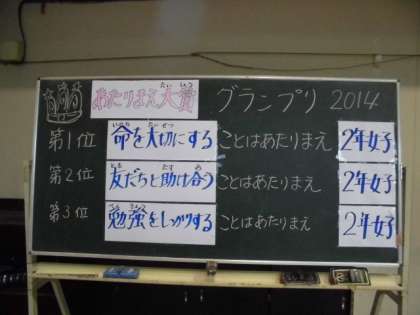 あたりまえ大賞 グランプリ 2014
第1位 命を大切にする ことはあたりまえ 2年女子
第2位 友だちと助け合う ことはあたりまえ 2年女子
第3位 勉強をしっかりする ことはあたりまえ 2年女子